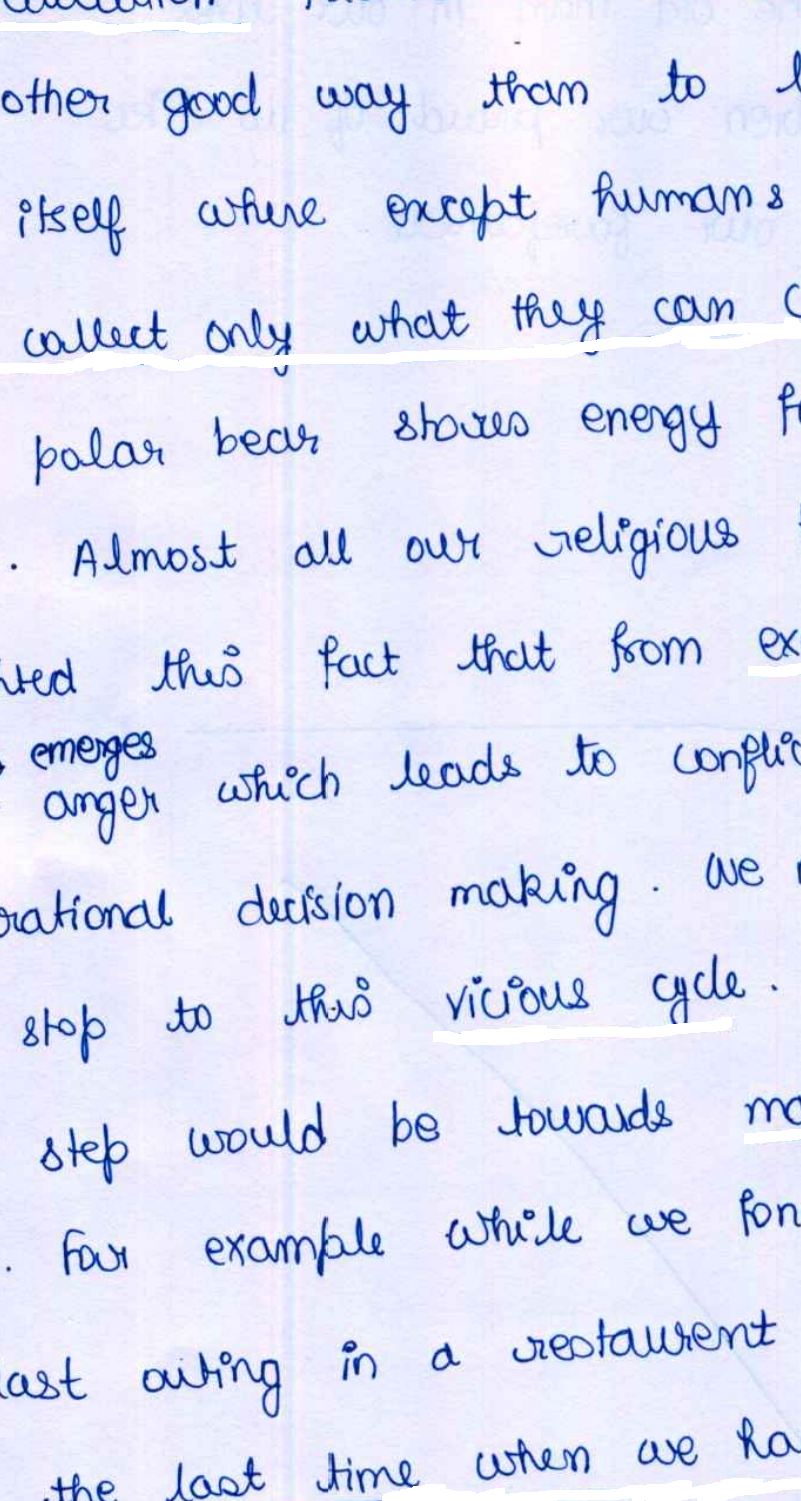 other good way than to
itself where except humans
collect only what they can
polar bear stores energy
. Almost all our religious
this fact that from
emerges
anger which leads to
decision making. We
stop to this vicious cycle.
step would be towards
. For example while we
last outing in a restaurent
the last time when we